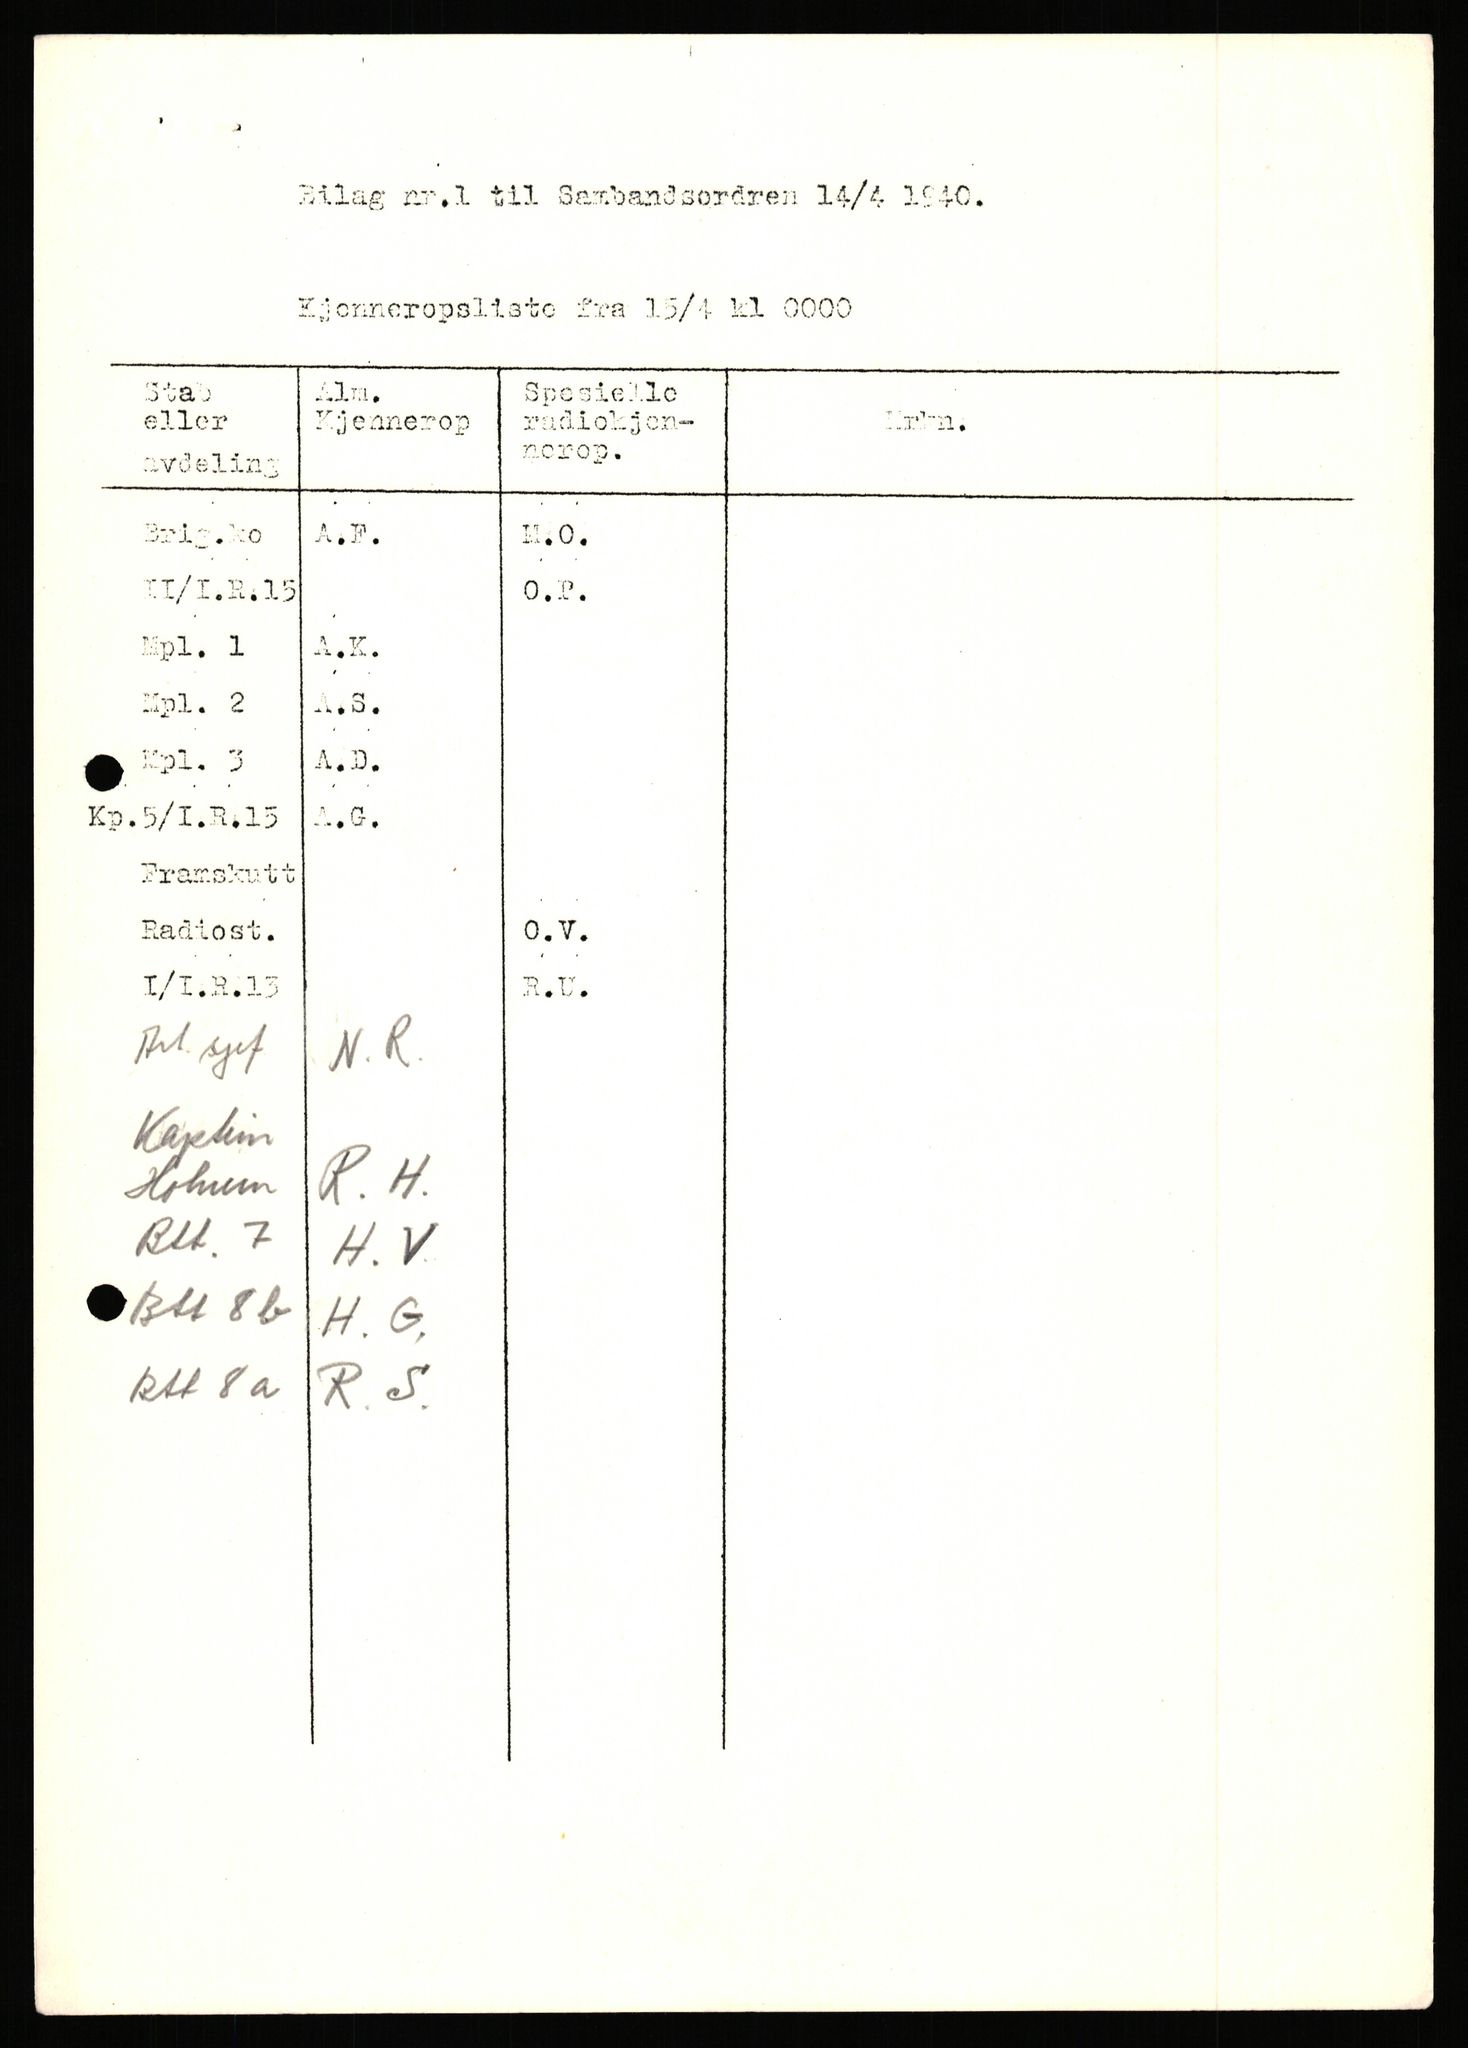 Bilag nr.1 til Sambandsordren 14/4 1940.
Kjenneropsliste fra 15/4 kl 0000
Stab eller avdeling | Alm. Kjennerop | Spesielle radiokjen-nerop. | Mrkn.
Brig.ko A.F. M.O.
II/I.R.15 O.P.
Mpl. 1 A.K.
Mpl. 2 A.S.
Mpl. 3 A.D.
Kp.5/I.R.15 A.G.
Framskutt
Radiost. O.V.
I/I.R.13 R.U.
Art. sjef N. R.
Kaptein
R. H.
Btt. 7 H. V.
Btt 8b H. G.
Btt 8a R. S.